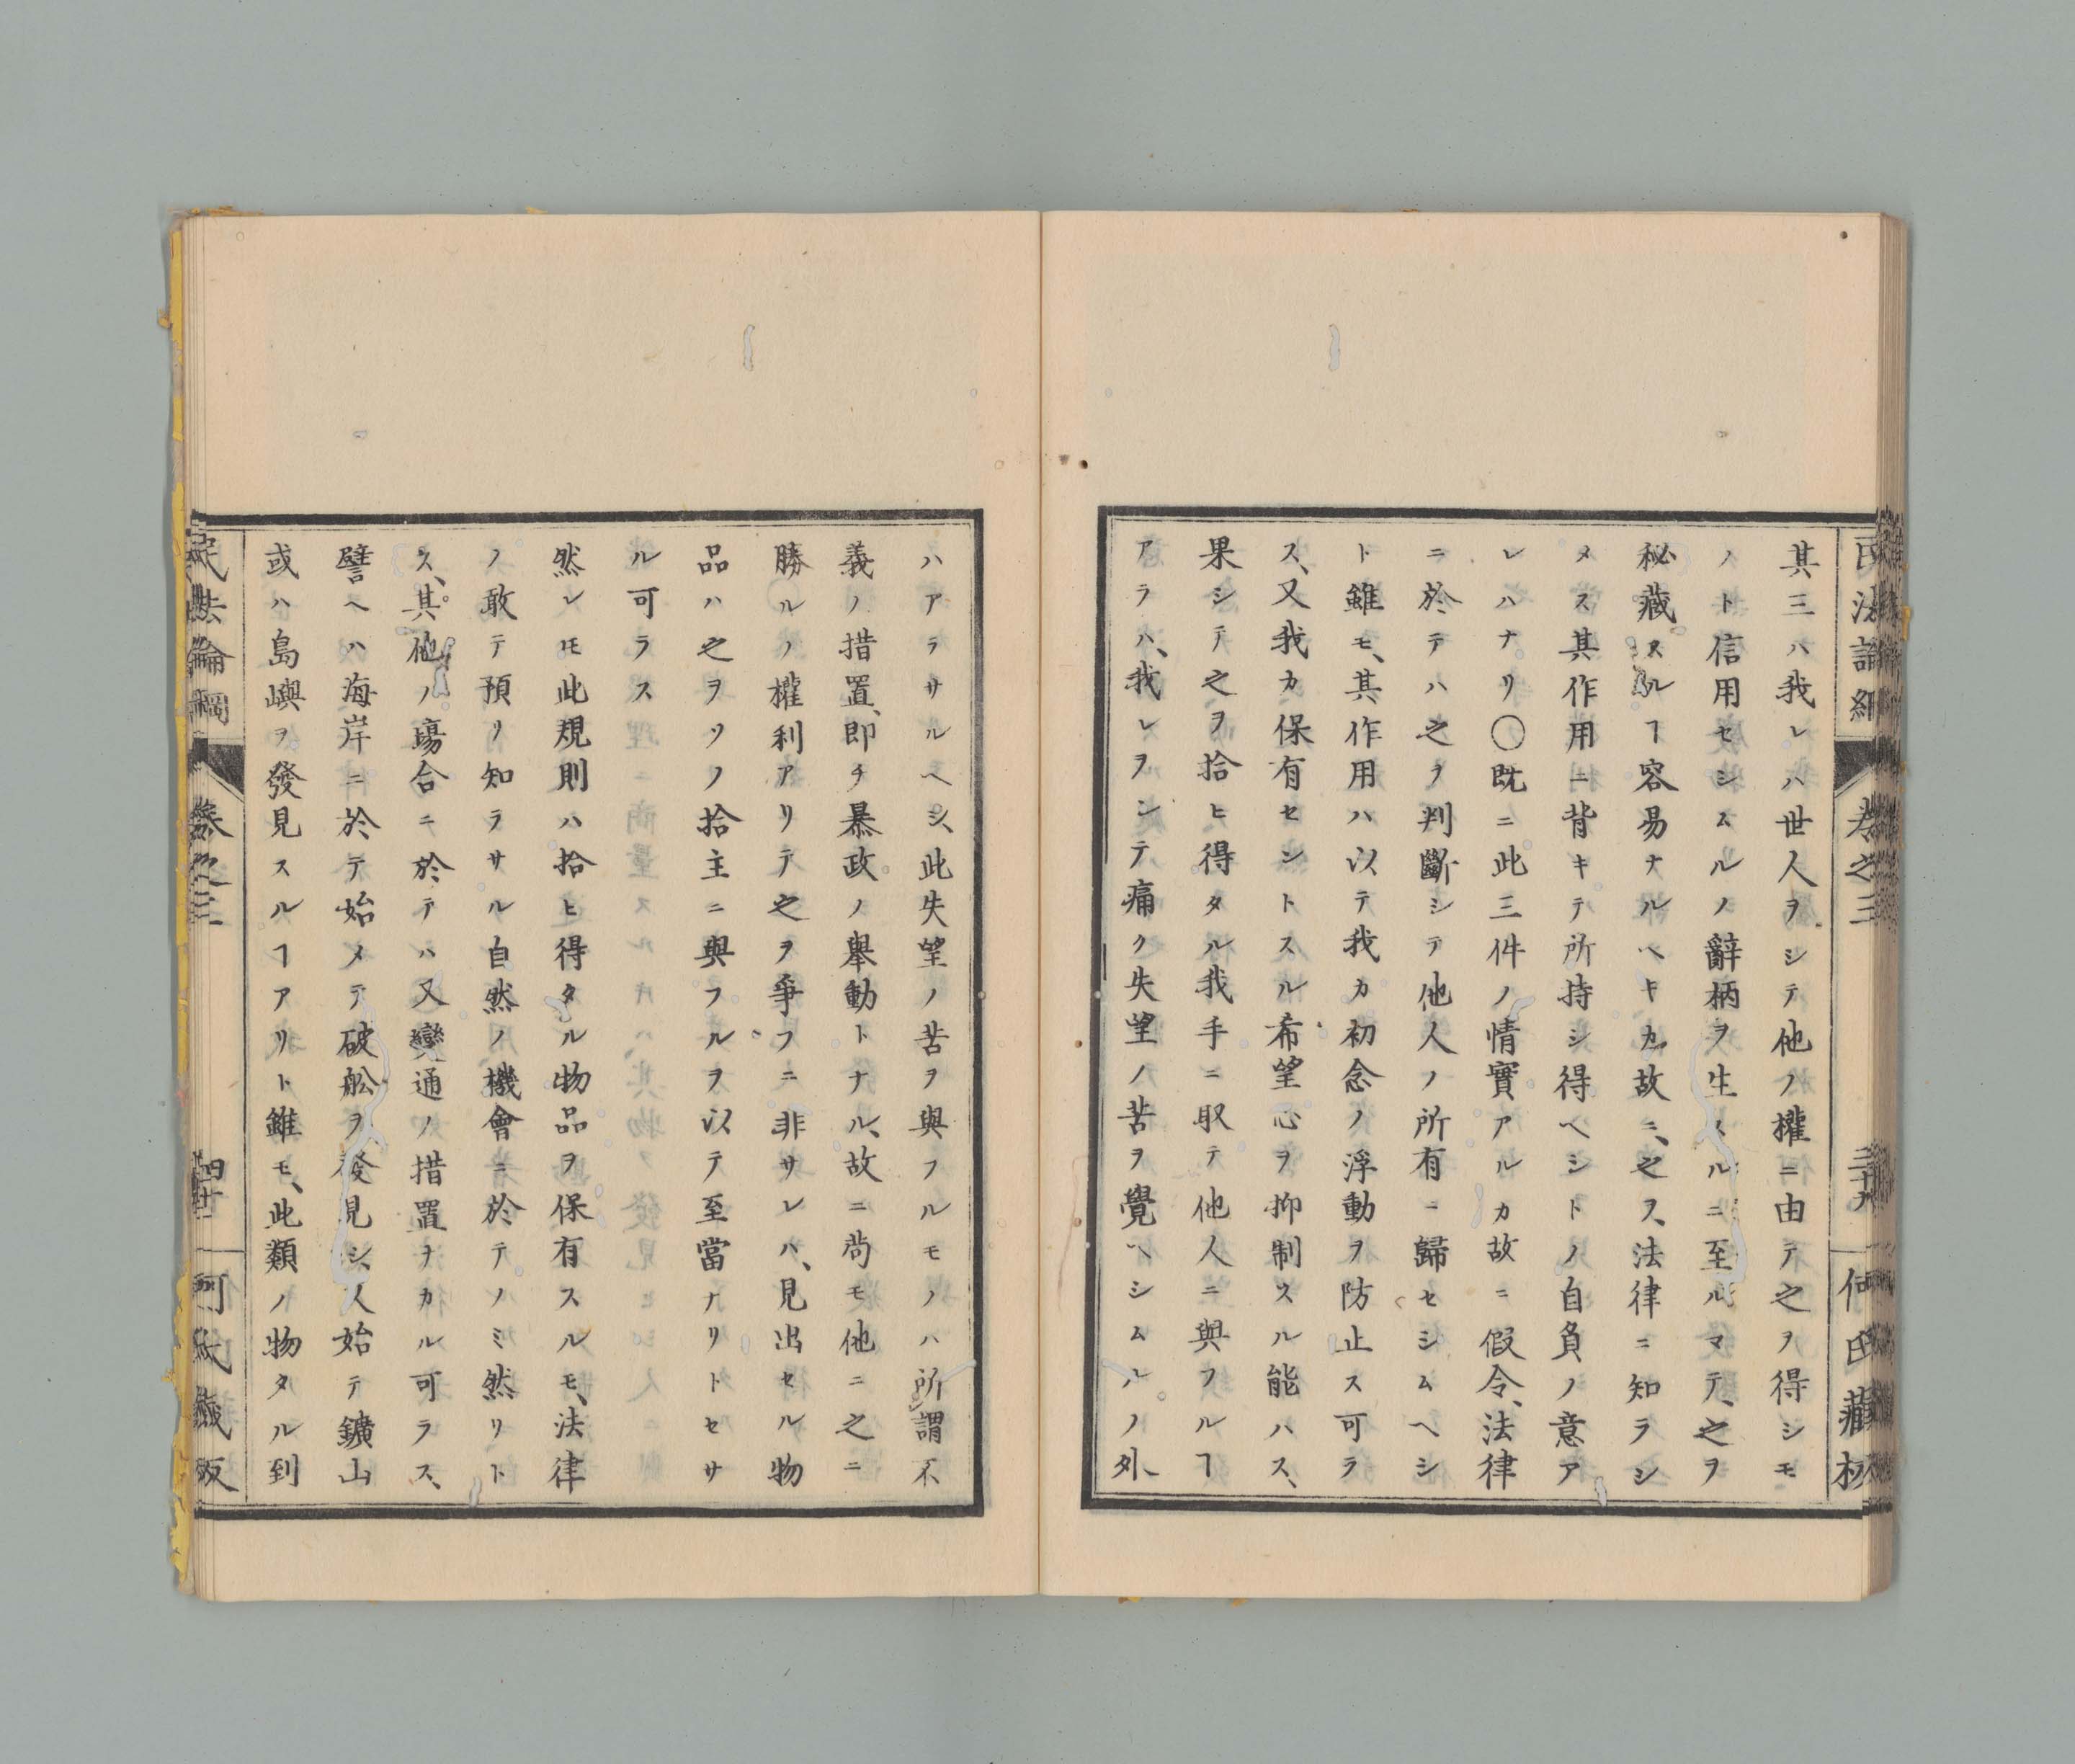 民法論綱
卷之三
三十九
何氏藏板
其三ハ我レハ世人ヲシテ他ノ權ニ由テ之ヲ得シモ
ノト信用セシムルノ辭柄ヲ生スルニ至ルマテ、之ヲ
秘藏スルヿ容易ナルヘキカ故ニ、之ヲ、法律ニ知ラシ
メス其作用ニ背キテ所持シ得ヘシトノ自負ノ意ア
レハナリ〇既ニ此三件ノ情實アルカ故ニ假令、法律
ニ於テハ之ヲ判斷シテ他人ノ所有ニ歸セシムヘシ
ト雖モ、其作用ハ以テ我カ初念ノ浮動ヲ防止ス可ラ
ス、又我カ保有セントスル希望心ヲ抑制スル能ハス、
果シテ之ヲ拾ヒ得タル我手ニ取テ他人ニ與フルヿ
アラハ、我レヲンテ痛ク失望ノ苦ヲ覺ヘシムルノ外
ハアラサルヘシ、此失望ノ苦ヲ與フルモノハ所謂不
義ノ措置、即チ暴政ノ擧動トナル、故ニ尚モ他ニ之ニ
勝ルノ權利アリテ之ヲ爭フニ非サレハ、見出セル物
品ハ之ヲソノ拾主ニ與フルヲ以テ至當ナリトセサ
ル可ラス
然レモ此規則ハ拾ヒ得タル物品ヲ保有スルモ、法律
ノ敢テ預リ知ラサル自然ノ機會ニ於テノミ然リト
ス、其他ノ塲合ニ於テハ又變通ノ措置ヲカル可ラス、
譬ヘハ海岸ニ於テ始メテ破舩ヲ發見シ、人始テ鑛山
或ハ島嶼ヲ發見スルヿアリト雖モ、此類ノ物タル到
民法論綱
卷之三
四十
何氏藏板